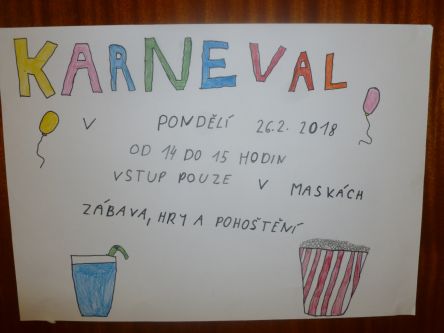 KARNEVAL
V PONDĚLÍ 26.2. 2018
OD 14 DO 15 HODIN
VSTUP POUZE V MASKÁCH
ZÁBAVA, HRY A POHOŠTĚNÍ